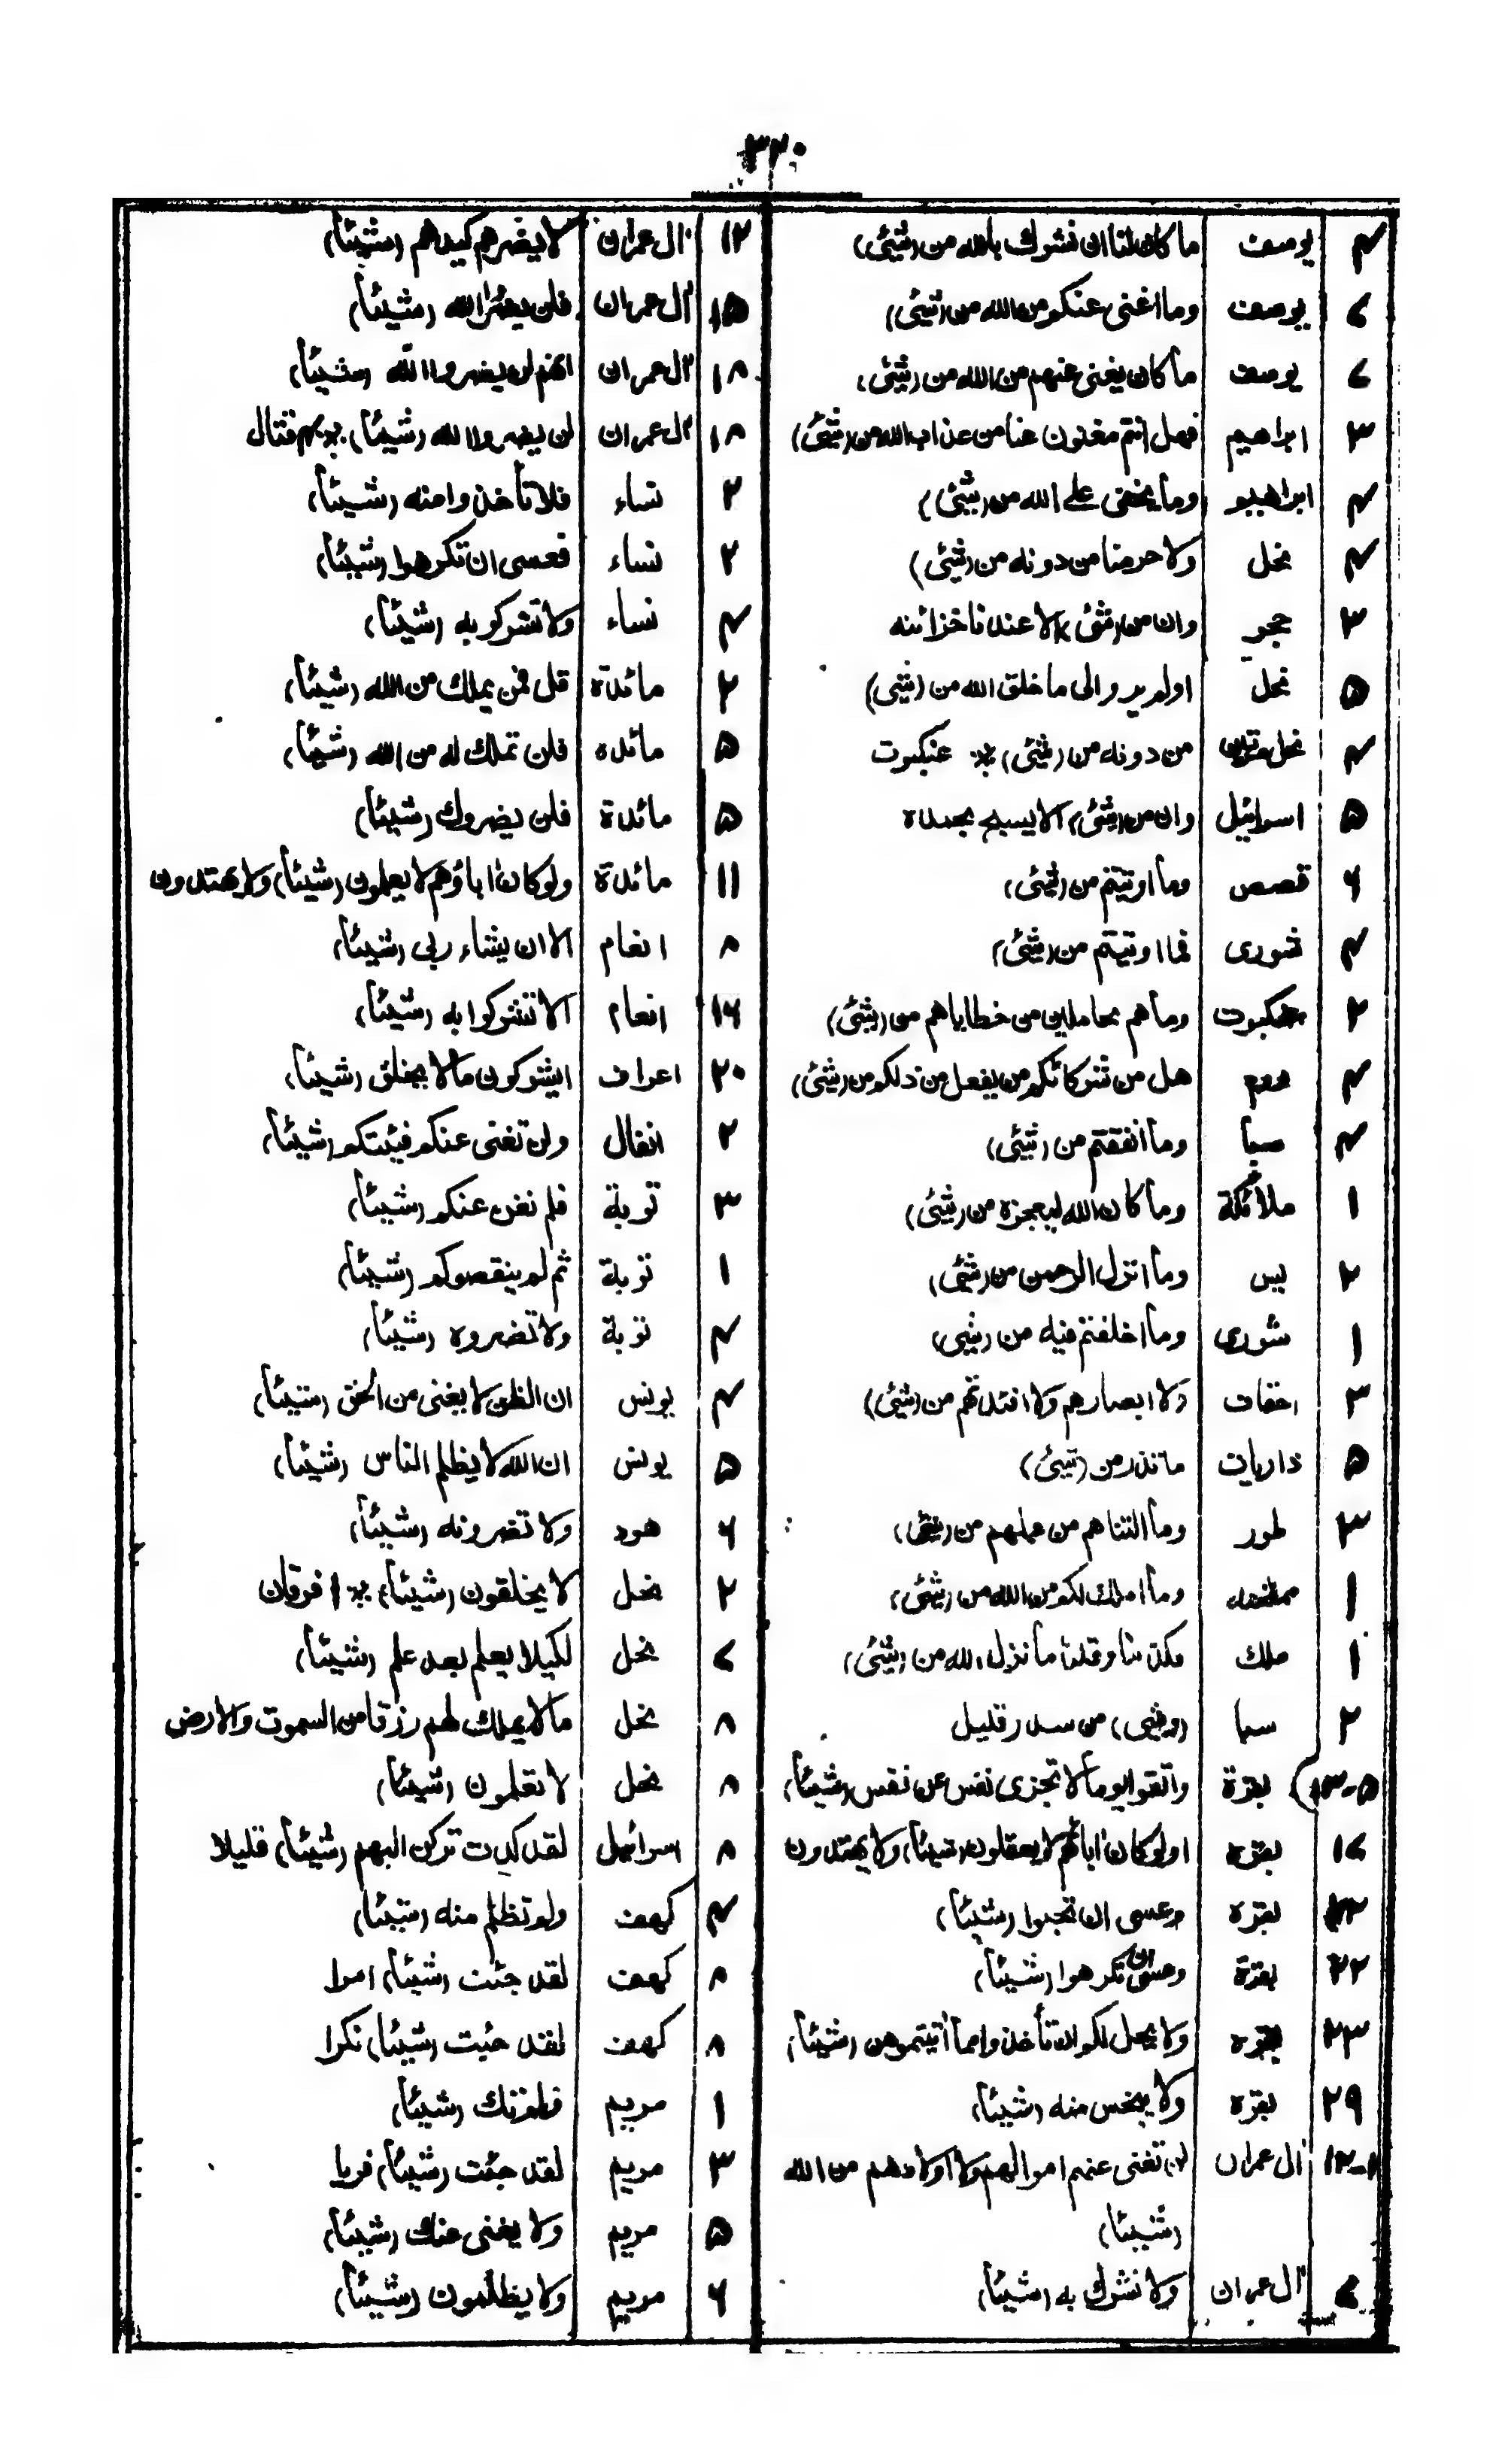 ۳۲۰
۴ یوسف ما کان لنا ان نشرك بالله من (شیٔ)
۷ یوسف وما اغنی عنکم من الله من (شیٔ)
۷ یوسف ما کان یغنی عنهم من الله من (شیٔ)
۳ ابراهیم فهل انتم مغنون عنا من عذاب الله من (شیٔ)
۴ ابراهیم وما یخفی علی الله من (شیٔ)
۴ نحل ولا حرمنا من دونه من (شیٔ)
۳ حجر وان من (شیٔ) الا عندنا خزائنه
۵ نحل اولم یروا الی ما خلق الله من (شیٔ)
۴ نحل من دونه من (شیٔ) عنکبوت
۵ اسرائیل وان من (شیٔ) الا یسبح بحمده
۶ قصص وما اوتیتم من (شیٔ)
۴ شوری فما اوتیتم من (شیٔ)
۲ عنکبوت وما هم بحاملین من خطایاهم من (شیٔ)
۴ روم هل من شرکائکم من یفعل من ذلکم من (شیٔ)
۴ سبا وما انفقتم من (شیٔ)
۱ ملائکة وما کان الله لیعجزه من (شیٔ)
۲ یس وما انزل الرحمن من (شیٔ)
۱ شوری وما اختلفتم فیه من (شیٔ)
۳ احقاف ولا ابصارهم ولا افئدتهم من (شیٔ)
۵ ذاریات ما تذر من (شیٔ)
۳ طور وما التناهم من عملهم من (شیٔ)
۱ ممتحنه وما املك لکم من الله من (شیٔ)
۱ ملك فکذبنا وقلنا ما نزل الله من (شیٔ)
۲ سبا (وشیٔ) من سدر قلیل
۵-۱۳ بقرة واتقوا یوما لا تجزی نفس عن نفس (شیئا)
۱۷ بقره اولو کان اباؤهم لا یعقلون (شیئا) ولا یهتدون
بقره وعسی ان تحبوا (شیئا)
۲۲ بقرة وعسی ان تکرهوا (شیئا)
۲۳ بقره ولا یحل لکم ان تأخذوا مما اتیتموهن (شیئا)
۲۹ بقره ولا یبخس منه (شیئا)
۱۲-۲ ال عمران لن تغنی عنهم اموالهم ولا اولادهم من الله
(شیئا)
۷ ال عمران ولا نشرك به (شیئا)
۱۲ ال عمران لا یضرهم کیدهم (شیئا)
۱۵ ال عمران فلن یضر الله (شیئا)
۱۸ ال عمران انهم لن یضروا الله (شیئا)
۱۸ ال عمران لن یضروا الله (شیئا) قتال
۲ نساء فلا تأخذوا منه (شیئا)
۲ نساء فعسی ان تکرهوا (شیئا)
۴ نساء ولا تشرکو به (شیئا)
۲ مائدة قل فمن یملك من الله (شیئا)
۵ مائده فلن تملك له من الله (شیئا)
۵ مائدة فلن یضروك (شیئا)
۱۱ مائدة ولو کان اباؤهم لا یعلمون (شیئا) ولا یهتدون
۸ انعام الا ان یشاء ربی (شیئا)
۱۶ انعام الا تشرکوا به (شیئا)
۲۰ اعراف ایشرکون ما لا یخلق (شیئا)
۲ انفال ولن تغنی عنکم فیئتکم (شیئا)
۳ توبة فلم تغن عنکم (شیئا)
۱ توبة ثم لم ینقصوکم (شیئا)
۴ توبة ولا تضروه (شیئا)
۴ یونس ان الظن لا یغنی من الحق (شیئا)
۵ یونس ان الله لا یظلم الناس (شیئا)
۶ هود ولا تضرونه (شیئا)
۲ نحل لا یخلقون (شیئا) ۱ فرقان
۷ نحل لکیلا یعلم بعد علم (شیئا)
۸ نحل ما لا یملك لهم رزقا من السموت والارض
۸ نحل لا تعلمون (شیئا)
۸ اسرائیل لقد کدت ترکن الیهم (شیئا) قلیلا
۴ کهف ولم تظلم منه (شیئا)
۸ کهف لقد جئت (شیئا) امرا
۸ کهف لقد جئت (شیئا) نکرا
۱ مریم خلقتك (شیئا)
۳ مریم لقد جئت (شیئا) فریا
۵ مریم ولا یغنی عنك (شیئا)
۶ مریم ولا یظلمون (شیئا)